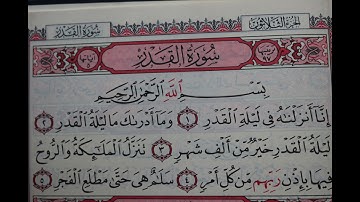 سُورَةُ القَدۡرِ الجزء الثلاثون
سُورَةُ القَدۡرِ
بِسۡمِ ٱللَّهِ ٱلرَّحۡمَٰنِ ٱلرَّحِيمِ
إِنَّآ أَنزَلۡنَٰهُ فِي لَيۡلَةِ ٱلۡقَدۡرِ ١ وَمَآ أَدۡرَىٰكَ مَا لَيۡلَةُ ٱلۡقَدۡرِ ٢
لَيۡلَةُ ٱلۡقَدۡرِ خَيۡرٞ مِّنۡ أَلۡفِ شَهۡرٖ ٣ تَنَزَّلُ ٱلۡمَلَٰٓئِكَةُ وَٱلرُّوحُ
فِيهَا بِإِذۡنِ رَبِّهِم مِّن كُلِّ أَمۡرٖ ٤ سَلَٰمٌ هِيَ حَتَّىٰ مَطۡلَعِ ٱلۡفَجۡرِ ٥